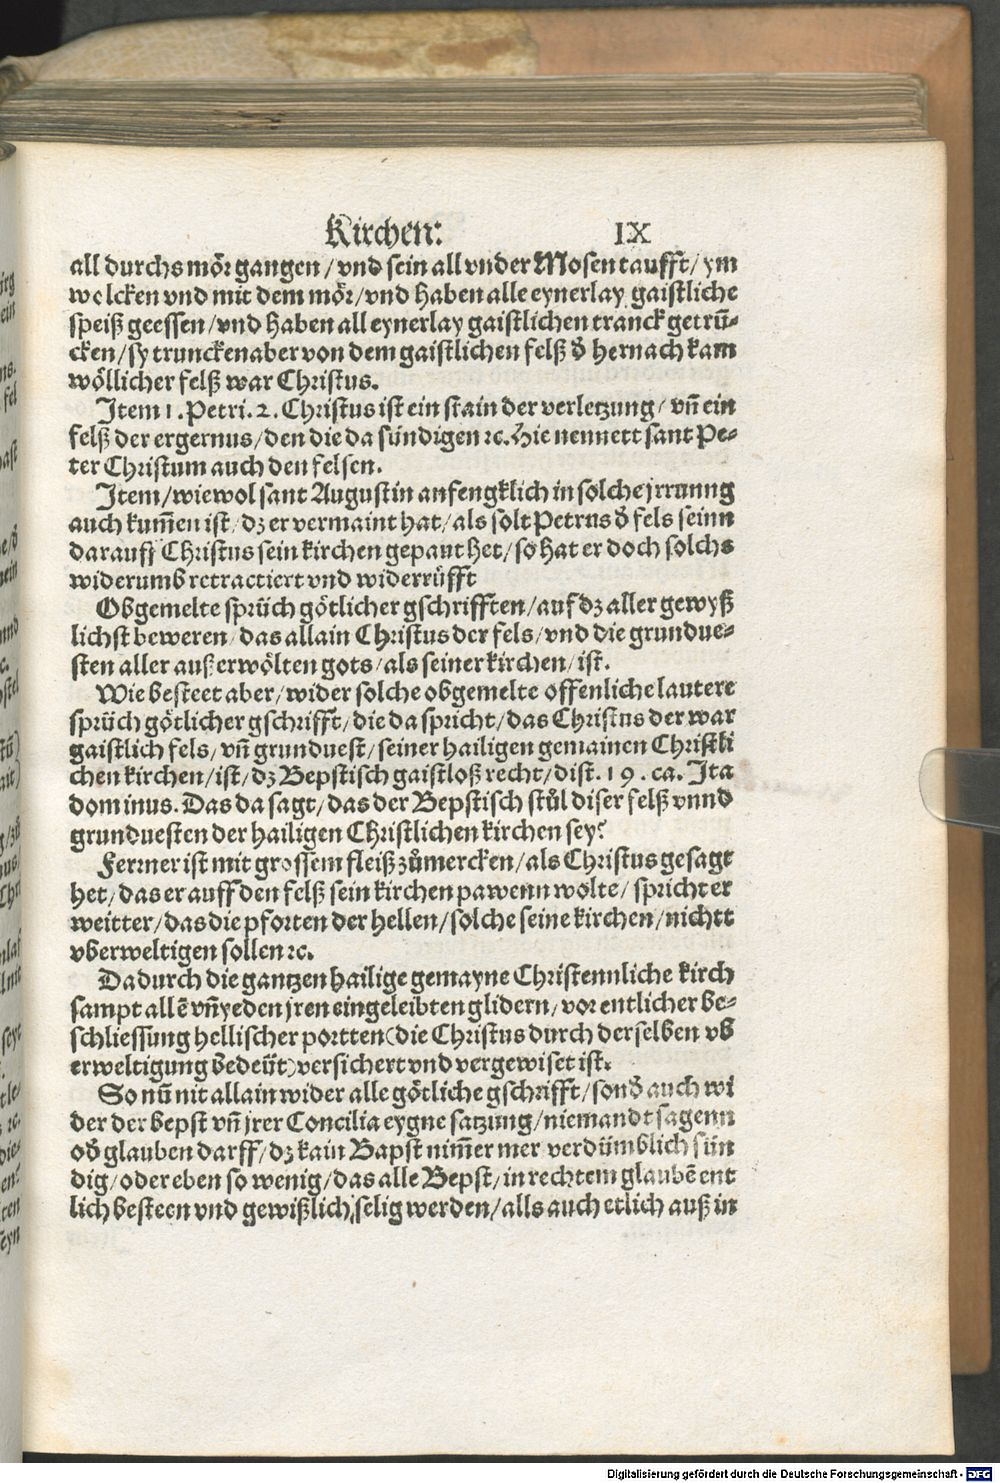 Kirchen: IX
all durchs mör gangen / vnd sein all vnder Mosen taufft / ym
wolcken vnd mit dem mör / vnd haben alle eynerlay gaistliche
speiß geessen / vnd haben all eynerlay gaistlichen tranck getrũ-
cken / sy truncken aber von dem gaistlichen felß d̄ hernach kam
wöllicher felß war Christus.
Item 1. Petri. 2. Christus ist ein stain der verletzung / vñ ein
felß der ergernus / den die da sündigen ꝛc. Hie nennett sant Pe-
ter Christum auch den felsen.
Item / wiewol sant Augustin anfengklich in solche jrrunng
auch kum̃en ist / dz er vermaint hat / als solt Petrus d̄ fels seinn
darauff Christus sein kirchen gepaut het / so hat er doch solchs
widerumb retractiert vnd widerrüfft
Obgemelte sprüch götlicher gschrifften / auf dz aller gewyß
lichst beweren / das allain Christus der fels / vnd die grundue-
sten aller außerwölten gots / als seiner kirchen / ist.
Wie besteet aber / wider solche obgemelte offenliche lautere
sprüch götlicher gschrifft / die da spricht / das Christus der war
gaistlich fels / vñ grunduest / seiner hailigen gemainen Christli
chen kirchen / ist / dz Bepstisch gaistloß recht / dist. 19. ca. Ita
dominus. Das da sagt / das der Bepstisch stůl diser felß vnnd
grunduesten der hailigen Christlichen kirchen sey?
Ferner ist mit grossem fleiß zůmercken / als Christus gesagt
het / das er auff den felß sein kirchen pawenn wolte / spricht er
weitter / das die pforten der hellen / solche seine kirchen / nichtt
vberweltigen sollen ꝛc.
Dadurch die gantzen hailige gemayne Christennliche kirch
sampt allẽ vñ yeden jren eingeleibten glidern / vor entlicher be-
schliessung hellischer portten (die Christus durch derselben vb
erweltigung bedeüt) versichert vnd vergewiset ist.
So nũ nit allain wider alle götliche gschrifft / sond̄ auch wi
der der bepst vñ jrer Concilia eygne satzung / niemandt sagenn
od̄ glauben darff / dz kain Bapst nim̃er mer verdümblich sün
dig / oder eben so wenig / das alle Bepst / in rechtem glaubẽ ent
lich besteen vnd gewißlich selig werden / alls auch etlich auß in
Digitalisierung gefördert durch die Deutsche Forschungsgemeinschaft - DFG